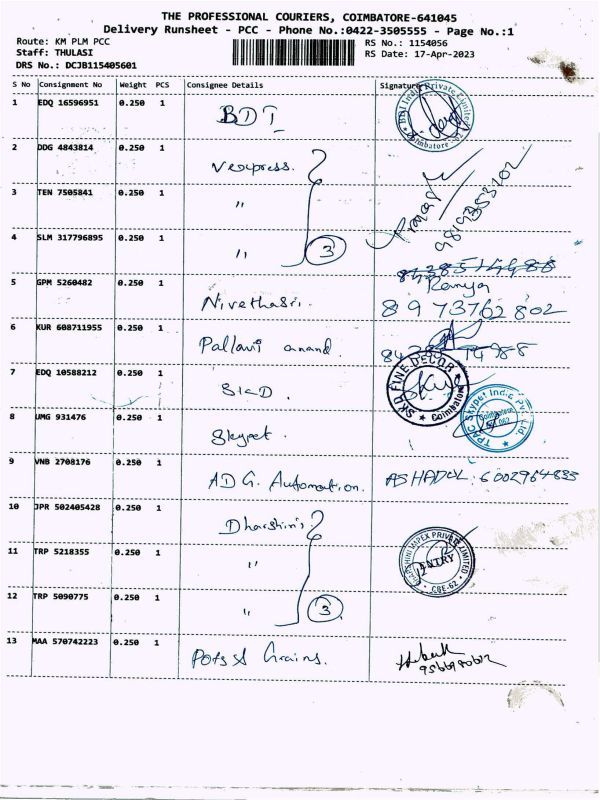 THE PROFESSIONAL COURIERS, COIMBATORE-641045
Delivery Runsheet - PCC - Phone No.:0422-3505555 - Page No.:1
Route: KM PLM PCC RS No.: 1154056
Staff: THULASI RS Date: 17-Apr-2023
DRS No.: DCJB115405601
S No Consignment No Weight PCS Consignee Details Signature
1 EDQ 16596951 0.250 1 BDI
2 DDG 4843814 0.250 1 Vexpress.
3 TEN 7505841 0.250 1 "
4 SLM 317796895 0.250 1 " 3
5 GPM 5260482 0.250 1 Nivethasri. Ramya
8973762802
6 KUR 608711955 0.250 1 Pallavi anand.
7 EDQ 10588212 0.250 1 SKD. SKD FINE DECOR * Coimbatore *
8 UMG 931476 0.250 1 Skypet. TPAC Skypet India Pvt. Ltd.
9 VNB 2708176 0.250 1 ADG. Automation. ASHADUL: 6002964833
10 JPR 502405428 0.250 1 Dharshini
11 TRP 5218355 0.250 1 " DHARSHINI IMPEX PRIVATE LIMITED ENTRY CBE-62
12 TRP 5090775 0.250 1 " 3
13 MAA 570742223 0.250 1 Pots & Grains.